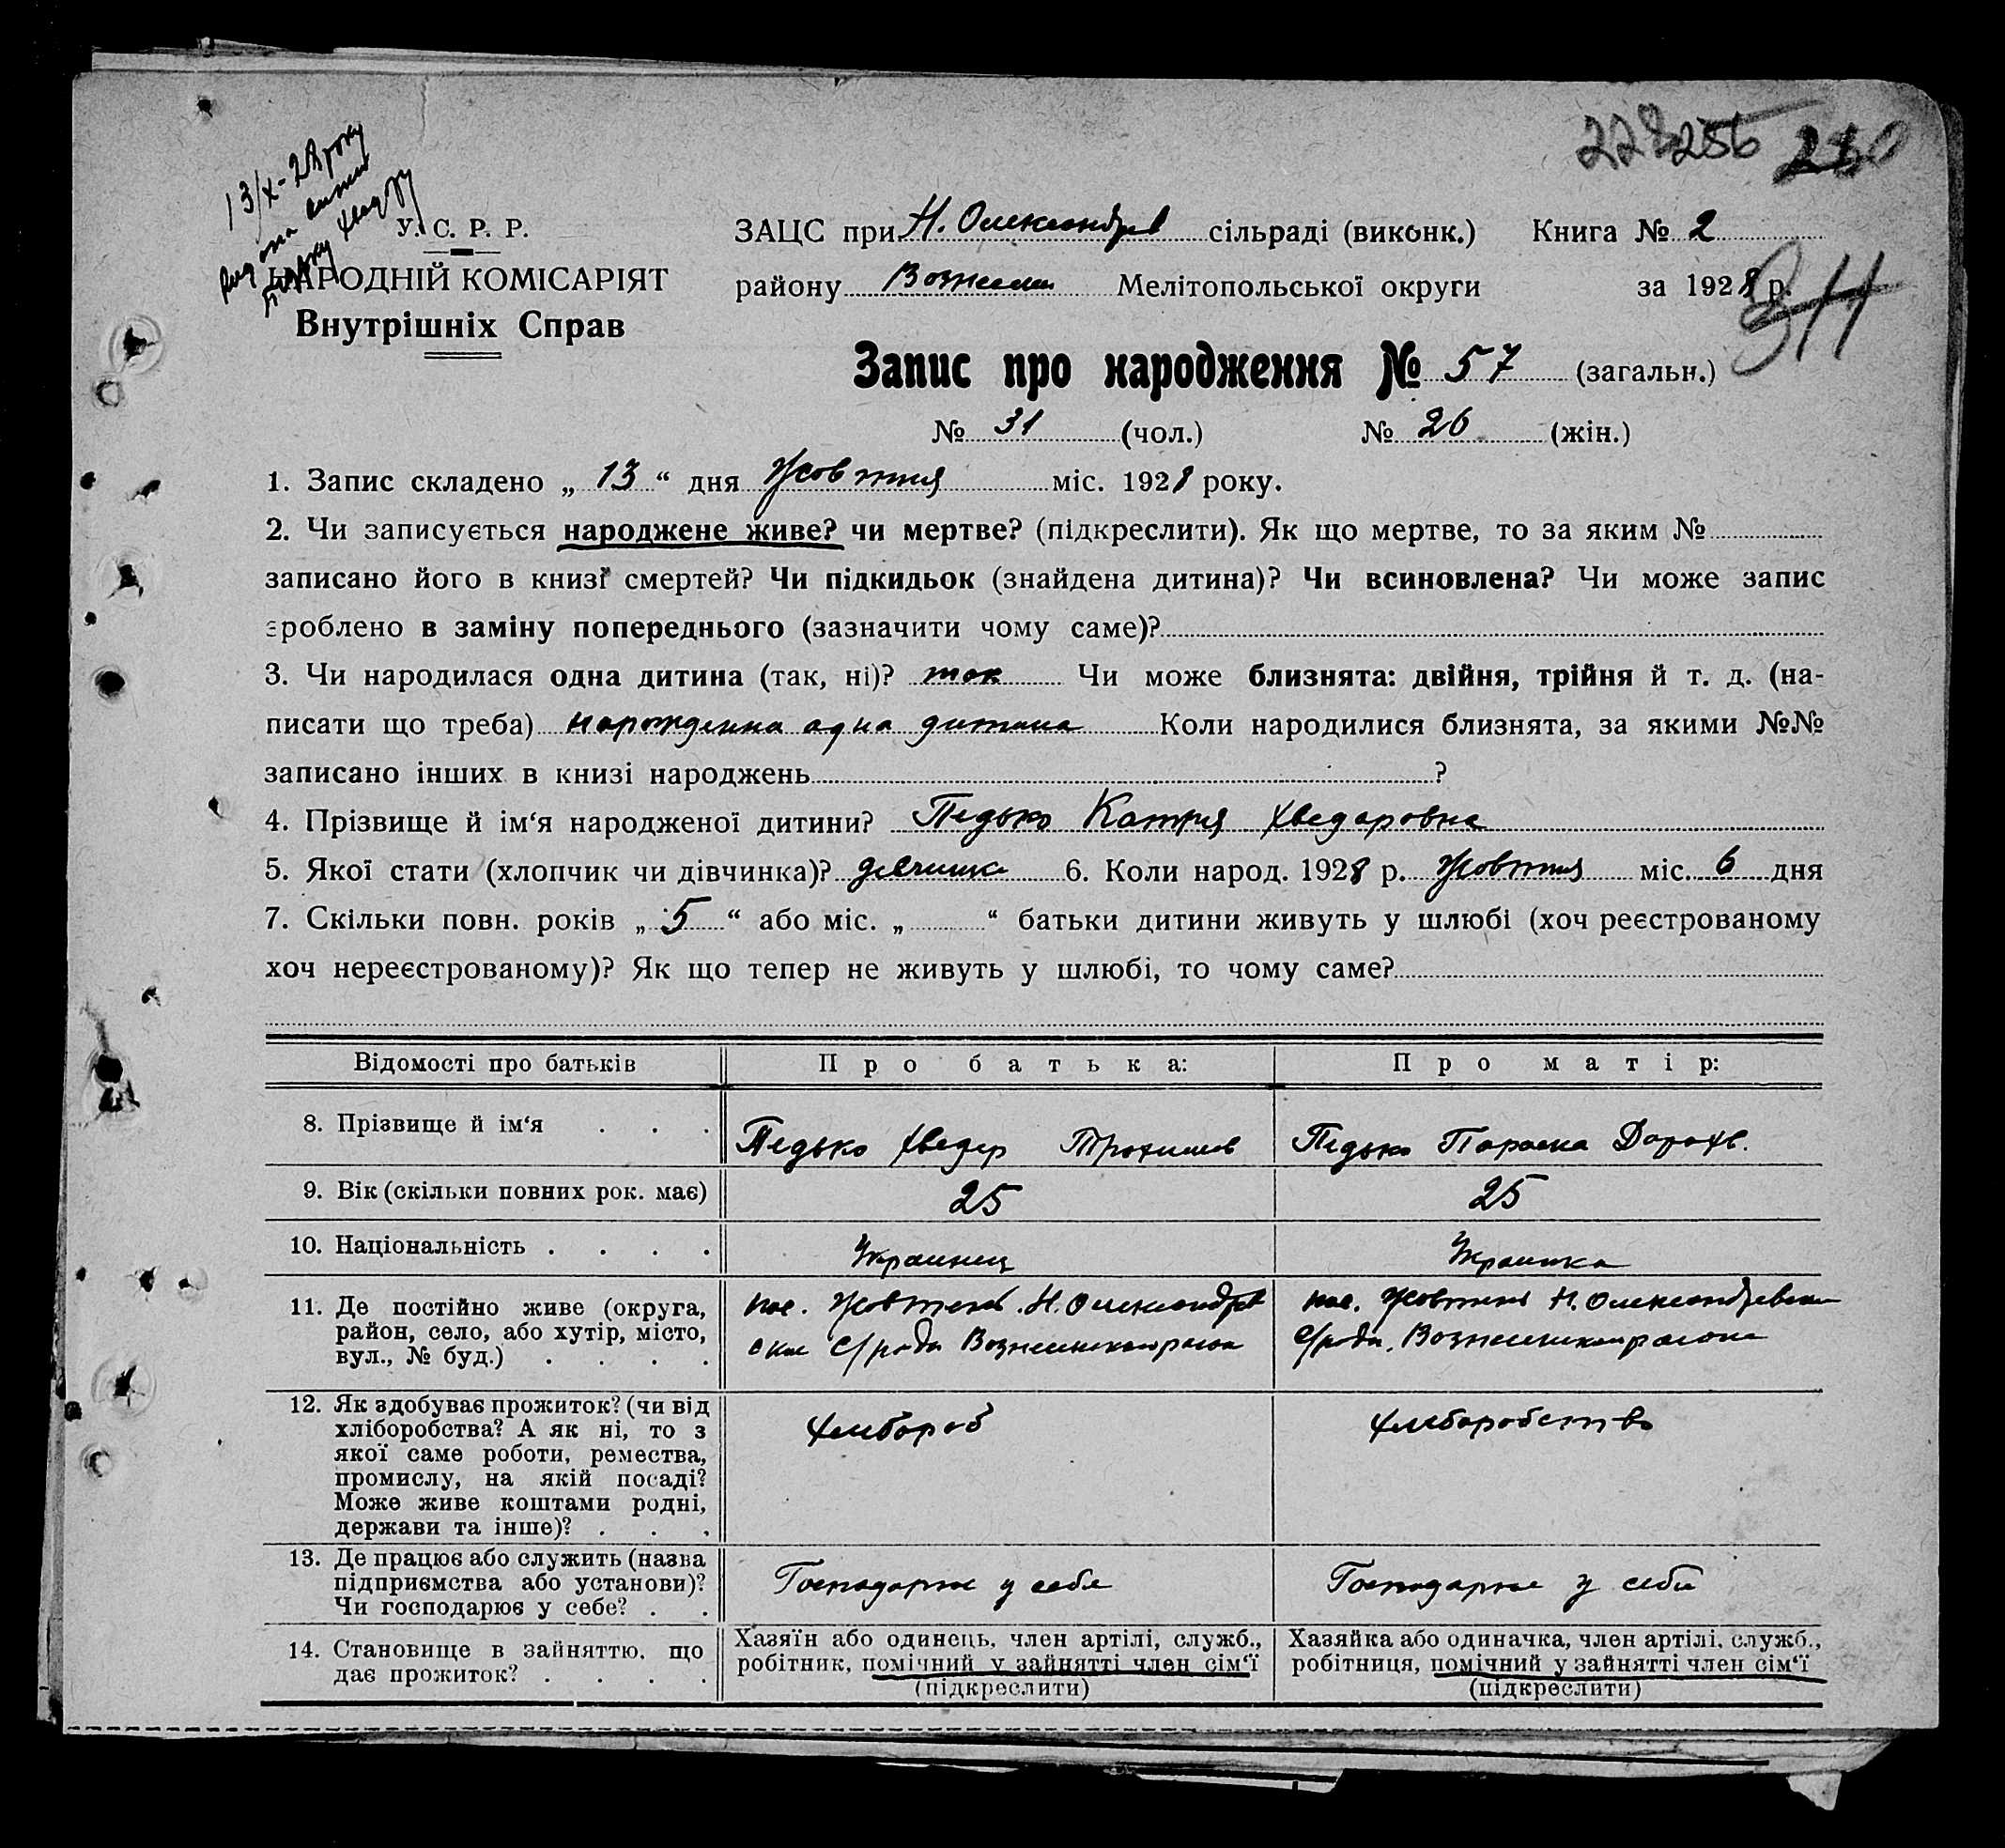 228 256 230
13/X-28 року
У. С. Р. Р.
НАРОДНІЙ КОМІСАРІЯТ
Внутрішніх Справ
ЗАЦС при Н. Олександрів сільраді (виконк.) Книга № 2
району Вознесен Мелітопольської округи за 1928 р.
311
Запис про народження № 57 (загальн.)
№ 31 (чол.) № 26 (жін.)
1. Запис складено „ 13 “ дня Жовтня міс. 1928 року.
2. Чи записується народжене живе? чи мертве? (підкреслити). Як що мертве, то за яким №
записано його в книзі смертей? Чи підкидьок (знайдена дитина)? Чи всиновлена? Чи може запис
зроблено в заміну попереднього (зазначити чому саме)?
3. Чи народилася одна дитина (так, ні)? так Чи може близнята: двійня, трійня й т. д. (на-
писати що треба) нарожденна одна дитина Коли народилися близнята, за якими №№
записано інших в книзі народжень ?
4. Прізвище й ім‘я народженої дитини? Педько Катря Хведаровна
5. Якої стати (хлопчик чи дівчинка)? девчинка 6. Коли народ. 1928 р. Жовтня міс. 6 дня
7. Скільки повн. років „ 5 “ або міс. „ “ батьки дитини живуть у шлюбі (хоч реєстрованому
хоч нереєстрованому)? Як що тепер не живуть у шлюбі, то чому саме?
Відомості про батьків Про батька: Про матір:
8. Прізвище й ім‘я Педько Хведер Трохимов Педько Параска Дорохв.
9. Вік (скільки повних рок. має) 25 25
10. Національність Украинец Украинка
11. Де постійно живе (округа, район, село, або хутір, місто, вул., № буд.)
пос. Жовтень Н. Олександрів
ской с/ради Вознесенскаго раона
пос. Жовтень Н. Олександревской
с/ради. Вознесенскаго раона
12. Як здобуває прожиток? (чи від
хліборобства? А як ні, то з
якої саме роботи, ремества,
промислу, на якій посаді?
Може живе коштами родні,
держави та інше)?
Хлибороб Хлиборобство
13. Де працює або служить (назва
підприємства або установи)?
Чи господарює у себе?
Господарює у себе Господарює у себи
14. Становище в зайняттю, що
дає прожиток?
Хазяїн або одинець, член артілі, служб.,
робітник, помічний у зайнятті член сім‘ї
(підкреслити)
Хазяйка або одиначка, член артілі, служб.,
робітниця, помічний у зайнятті член сім‘ї
(підкреслити)